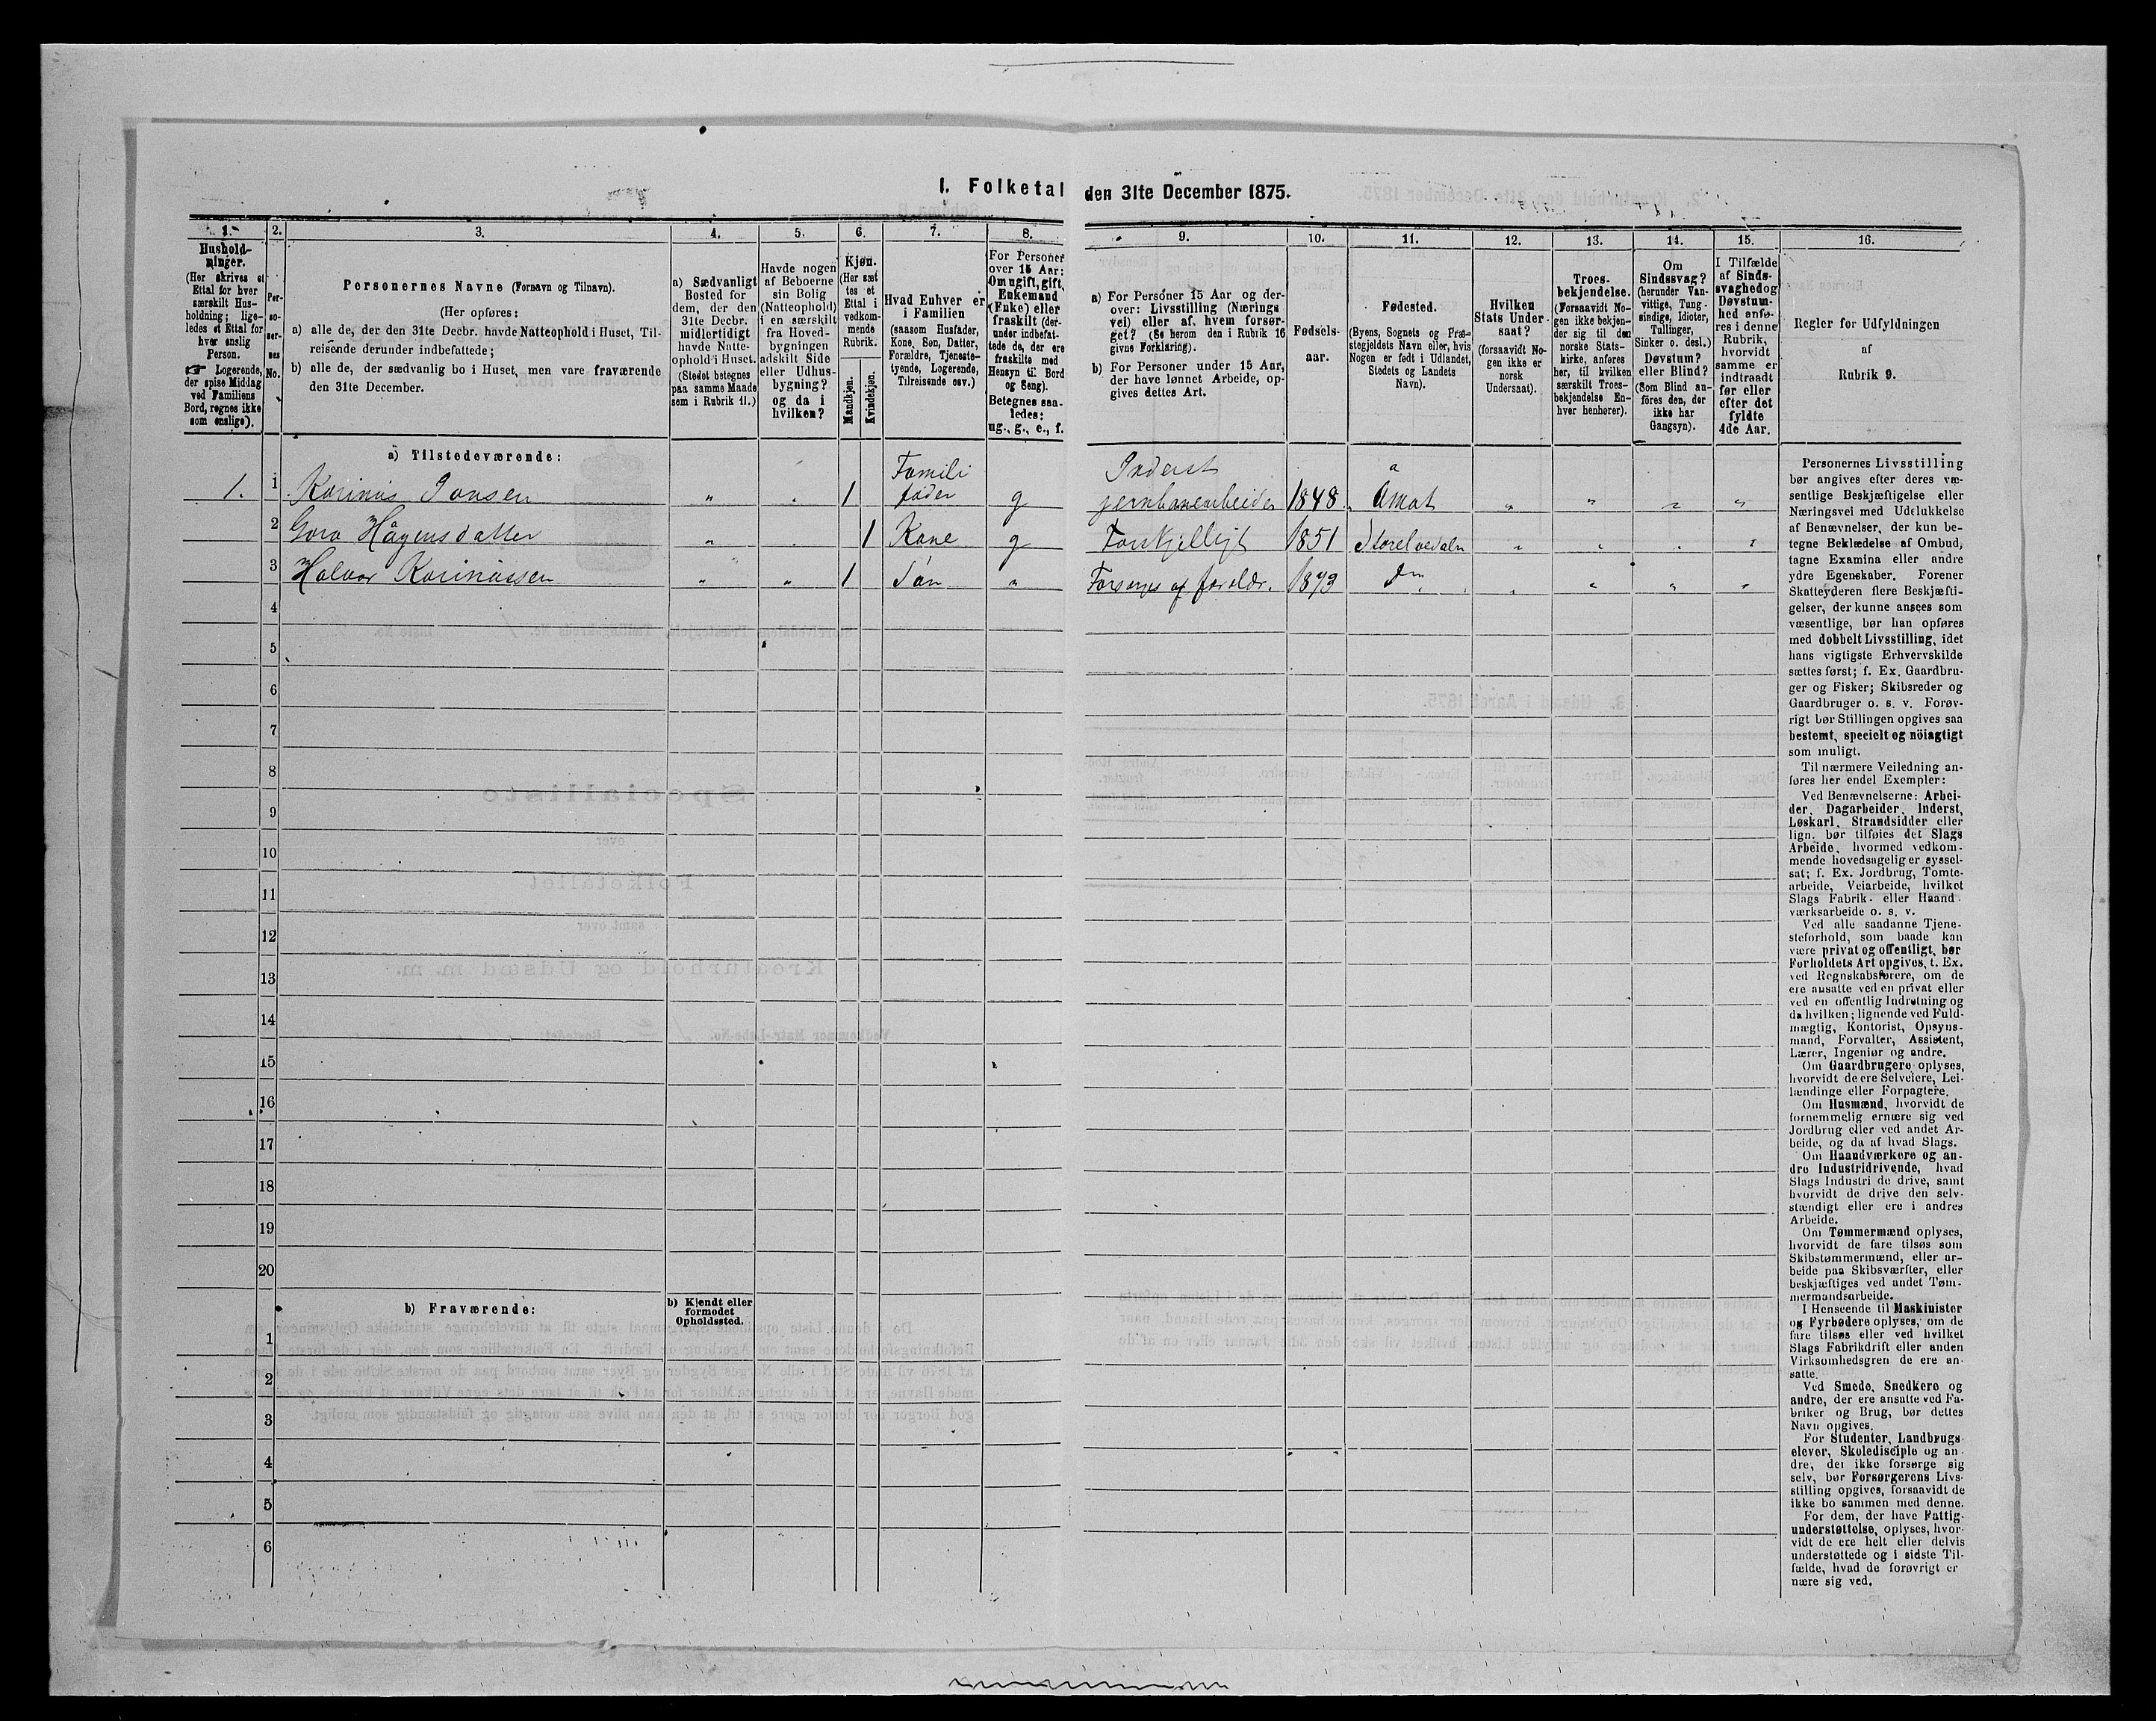 I. Folketal den 31te December 1875.
1. 2. 3. 4. 5. 6. 7. 8. 9. 10. 11. 12. 13. 14. 15. 16.
Hushold-
ninger.
(Her skrives et
Ettal for hver
særskilt Hus-
holdning; lige-
ledes et Ettal for
hver enslig
Person.
☞ Logerende,
der spise Middag
ved Familiens
Bord, regnes ikke
som enslige).
Per-
so-
ner-
nes
No.
Personernes Navne (Fornavn og Tilnavn).
(Her opføres:
a) alle de, der den 31te Decbr. havde Natteophold i Huset, Til-
reisende derunder indbefattede;
b) alle de, der sædvanlig bo i Huset, men vare fraværende
den 31te December.
a) Sædvanligt
Bosted for
dem, der den
31te Decbr.
midlertidigt
havde Natte-
ophold i Huset.
(Stedet betegnes
paa samme Maade
som i Rubrik 11.)
Havde nogen
af Beboerne
sin Bolig
(Natteophold)
i en særskilt
fra Hoved-
bygningen
adskilt Side
eller Udhus-
bygning?
og da i
hvilken?
Kjøn.
(Her sæt
tes et
Ettal i
vedkom-
mende
Rubrik.
Mandkjøn.
Kvindekjøn.
Hvad Enhver er
i Familien
(saasom Husfader,
Kone, Søn, Datter,
Forældre, Tjeneste-
tyende, Logerende,
Tilreisende osv.)
For Personer
over 15 Aar:
Om ugift, gift,
Enkemand
(Enke) eller
fraskilt (der-
under indbefat-
tede de, der ere
fraskilte med
Hensyn til Bord
og Seng).
Betegnes saa-
ledes:
ug., g., e., f.
a) For Personer 15 Aar og der-
over: Livsstilling (Nærings
vei) eller af hvem forsør-
get? (Se herom den i Rubrik 16
givne Forklaring).
b) For Personer under 15 Aar,
der have lønnet Arbeide, op-
gives dettes Art.
Fødsels-
aar.
Fødested.
(Byens, Sognets og Præ-
stegjeldets Navn eller, hvis
Nogen er født i Udlandet,
Stedets og Landets
Navn).
Hvilken
Stats Under-
saat?
(forsaavidt No-
gen ikke er
norsk
Undersaat).
Troes-
bekjendelse.
(Forsaavidt No-
gen ikke bekjen-
der sig til den
norske Stats-
kirke, anføres
her, til hvilken
særskilt Troes-
bekjendelse En-
hver henhører).
Om
Sindssvag?
(herunder Van-
vittige, Tung-
sindige, Idioter,
Tullinger,
Sinker o. desl.)
Døvstum?
eller Blind?
(Som Blind an-
føres den, der
ikke har
Gangsyn).
I Tilfælde
af Sinds-
svaghed og
Døvstum-
hed anfø-
res i denne
Rubrik,
hvorvidt
samme er
indtraadt
før eller
efter det
fyldte
4de Aar.
Regler for Udfyldningen
af
Rubrik 9.
a) Tilstedeværende:
1. 1 Karinus Jonsen " . 1 Famili fader g Inderst jernbanearbeider 1848 Amot " " " "
2 Gora Hågensdatter " . 1 Kone g Forskjelligt 1851 Storelvedaln
3 Halvor Karinussen " " 1 Søn " Forsørges af foreldr. 1873 Do
4
5
6
7
8
9
10
11
12
13
14
15
16
17
18
19
20
b) Fraværende:
b) Kjendt eller
formodet
Opholdssted.
1
2
3
4
5
6
Personernes Livsstilling
bør angives efter deres væ-
sentlige Beskjæftigelse eller
Næringsvei med Udelukkelse
af Benævnelser, der kun be-
tegne Beklædelse af Ombud,
tagne Examina eller andre
ydre Egenskaber. Forener
Skatteyderen flere Beskjæfti-
gelser, der kunne ansees som
væsentlige, bør han opføres
med dobbelt Livsstilling, idet
hans vigtigste Erhvervskilde
sættes først; f. Ex. Gaardbru-
ger og Fisker; Skibsreder og
Gaardbruger o. s. v. Forøv-
rigt bør Stillingen opgives saa
bestemt, specielt og nöiagtigt
som muligt.
Til nærmere Veiledning an-
føres her endel Exempler:
Ved Benævnelserne: Arbei-
der, Dagarbeider, Inderst,
Løskarl, Strandsidder eller
lign. bør tilføies det Slags
Arbeide, hvormed vedkom-
mende hovedsagelig er syssel-
sat; f. Ex. Jordbrug, Tomte-
arbeide, Veiarbeide, hvilket
Slags Fabrik- eller Haand-
værksarbeide o. s. v.
Ved alle saadanne Tjene-
steforhold, som baade kan
være privat og offentligt, bør
Forholdets Art opgives, f. Ex.
ved Regnskabsførere, om de
ere ansatte ved en privat eller
ved en offentlig Indretning og
da hvilken; lignende ved Fuld-
mægtig, Kontorist, Opsyns-
mand, Forvalter, Assistent,
Lærer, Ingeniør og andre.
Om Gaardbrugere oplyses,
hvorvidt de ere Selveiere, Lei-
lændinge eller Forpagtere.
Om Husmænd, hvorvidt de
fornemmelig ernære sig ved
Jordbrug eller ved andet Ar-
beide, og da af hvad Slags.
Om Haandværkere og an-
dre Industridrivende, hvad
Slags Industri de drive, samt
hvorvidt de drive den selv-
stændigt eller ere i andres
Arbeide.
Om Tømmermænd oplyses,
hvorvidt de fare tilsøs som
Skibstømmermænd, eller ar-
beide paa Skibsværfter, eller
beskjæftiges ved andet Tøm-
mermandsarbeide.
I Henseende til Maskinister
og Fyrbødere oplyses, om de
fare tilsøs eller ved hvilket
Slags Fabrikdrift eller anden
Virksomhedsgren de ere an-
satte.
Ved Smede, Snedkere og
andre, der ere ansatte ved Fa-
briker og Brug, bør dettes
Navn opgives.
For Studenter, Landbrugs-
elever, Skoledisciple og an-
dre, der ikke forsørge sig
selv, bør Forsørgerens Livs-
stilling opgives, forsaavidt de
ikke bo sammen med denne.
For dem, der have Fattig-
understøttelse, oplyses, hvor-
vidt de ere helt eller delvis
understøttede og i sidste Til-
fælde, hvad de forøvrigt er
nære sig ved.